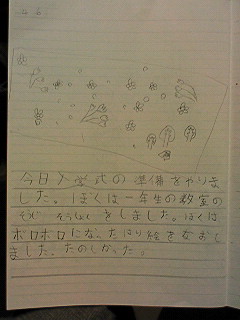 今日入学式の準備をやりま
した。ぼくは一年生の教室の
そうじ そうしょくをしました。ぼくは
ボロボロになったはり絵をなおし
ました。たのしかった。